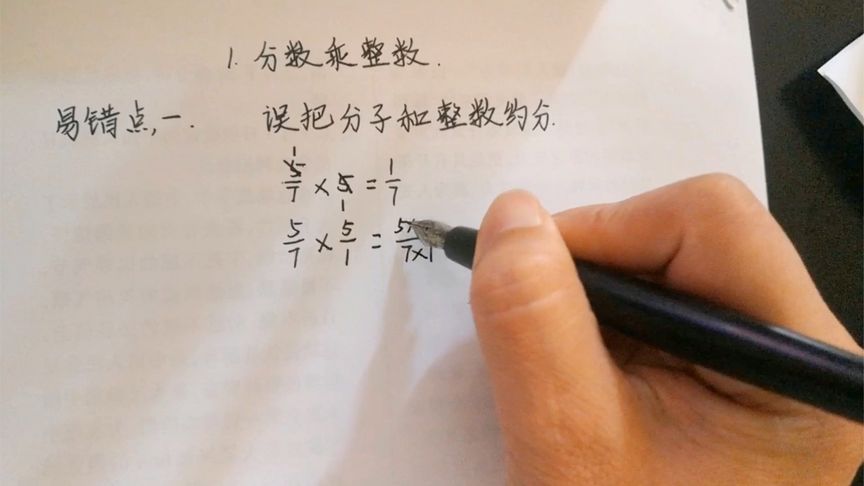 1. 分数乘整数.
易错点,一. 误把分子和整数约分.
1
5/7 × 5 = 1/7
1
5/7 × 5/1 = 5×/7×1